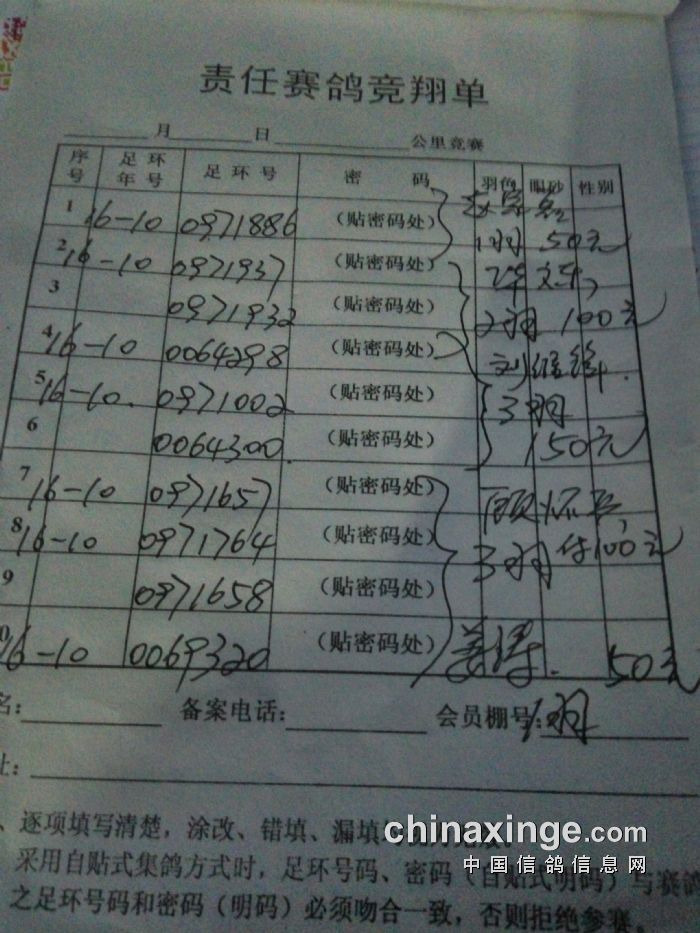 责任赛鸽竞翔单
月 日 公里竞赛
序号 足环年号 足环号 密码 羽色 眼砂 性别
1 16-10 0971886 (贴密码处)
1羽 50元
2 16-10 0971937 (贴密码处)
3 0971932 (贴密码处) 2羽 100元
4 16-10 0064298 (贴密码处) 刘维锋
5 16-10. 0971002 (贴密码处) 3羽
6 0064300. (贴密码处) 150元
7 16-10 0971657 (贴密码处)
8 16-10 0971764 (贴密码处) 3羽 付100元
9 0971658 (贴密码处)
0 16-10 0069320 (贴密码处) 50元
名: 备案电话: 会员棚号: 1羽
址:
、逐项填写清楚，涂改、错填、漏填
采用自贴式集鸽方式时，足环号码、密码（自贴式明码）与赛鸽
之足环号码和密码（明码）必须吻合一致，否则拒绝参赛。
chinaxinge.com
中国信鸽信息网